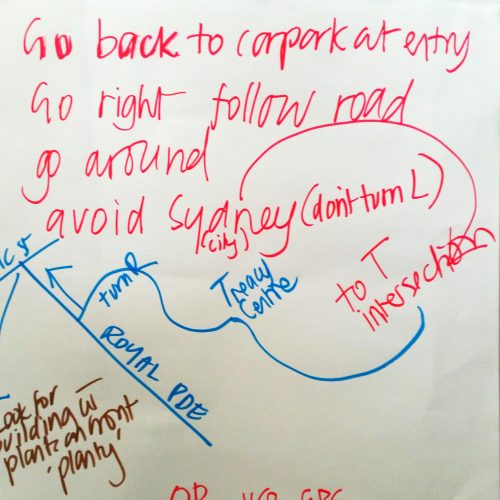 Go back to carpark at entry
Go right follow road
go around
avoid Sydney (don't turn L)
(city)
to T
intersection
Treacy
Centre
turn R
ROYAL PDE
Look for
building w
plants on front
'planty'
OR USE GPS